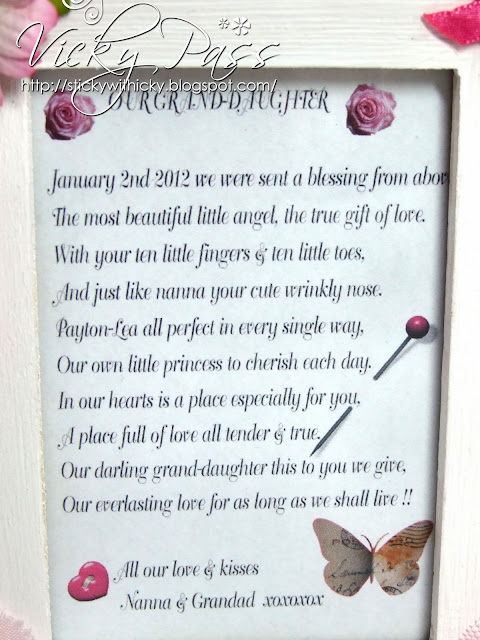 Vicky Pass
http://stickywithicky.blogspot.com/
OUR GRAND-DAUGHTER
January 2nd 2012 we were sent a blessing from abov
The most beautiful little angel, the true gift of love.
With your ten little fingers & ten little toes,
And just like nanna your cute wrinkly nose.
Payton-Lea all perfect in every single way,
Our own little princess to cherish each day.
In our hearts is a place especially for you,
A place full of love all tender & true.
Our darling grand-daughter this to you we give,
Our everlasting love for as long as we shall live !!
All our love & kisses
Nanna & Grandad xoxoxox